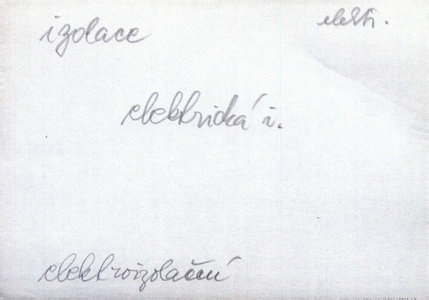 izolace
elektr.
elektrická i.
elektroizolační